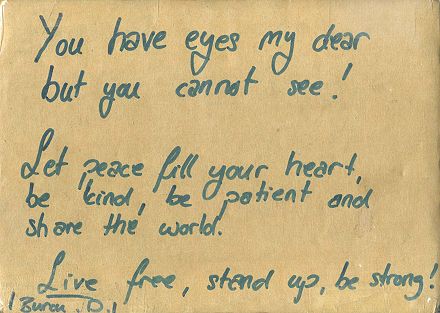 You have eyes my dear
but you cannot see!
Let peace fill your heart,
be kind, be patient and
share the world.
Live free, stand up, be strong!